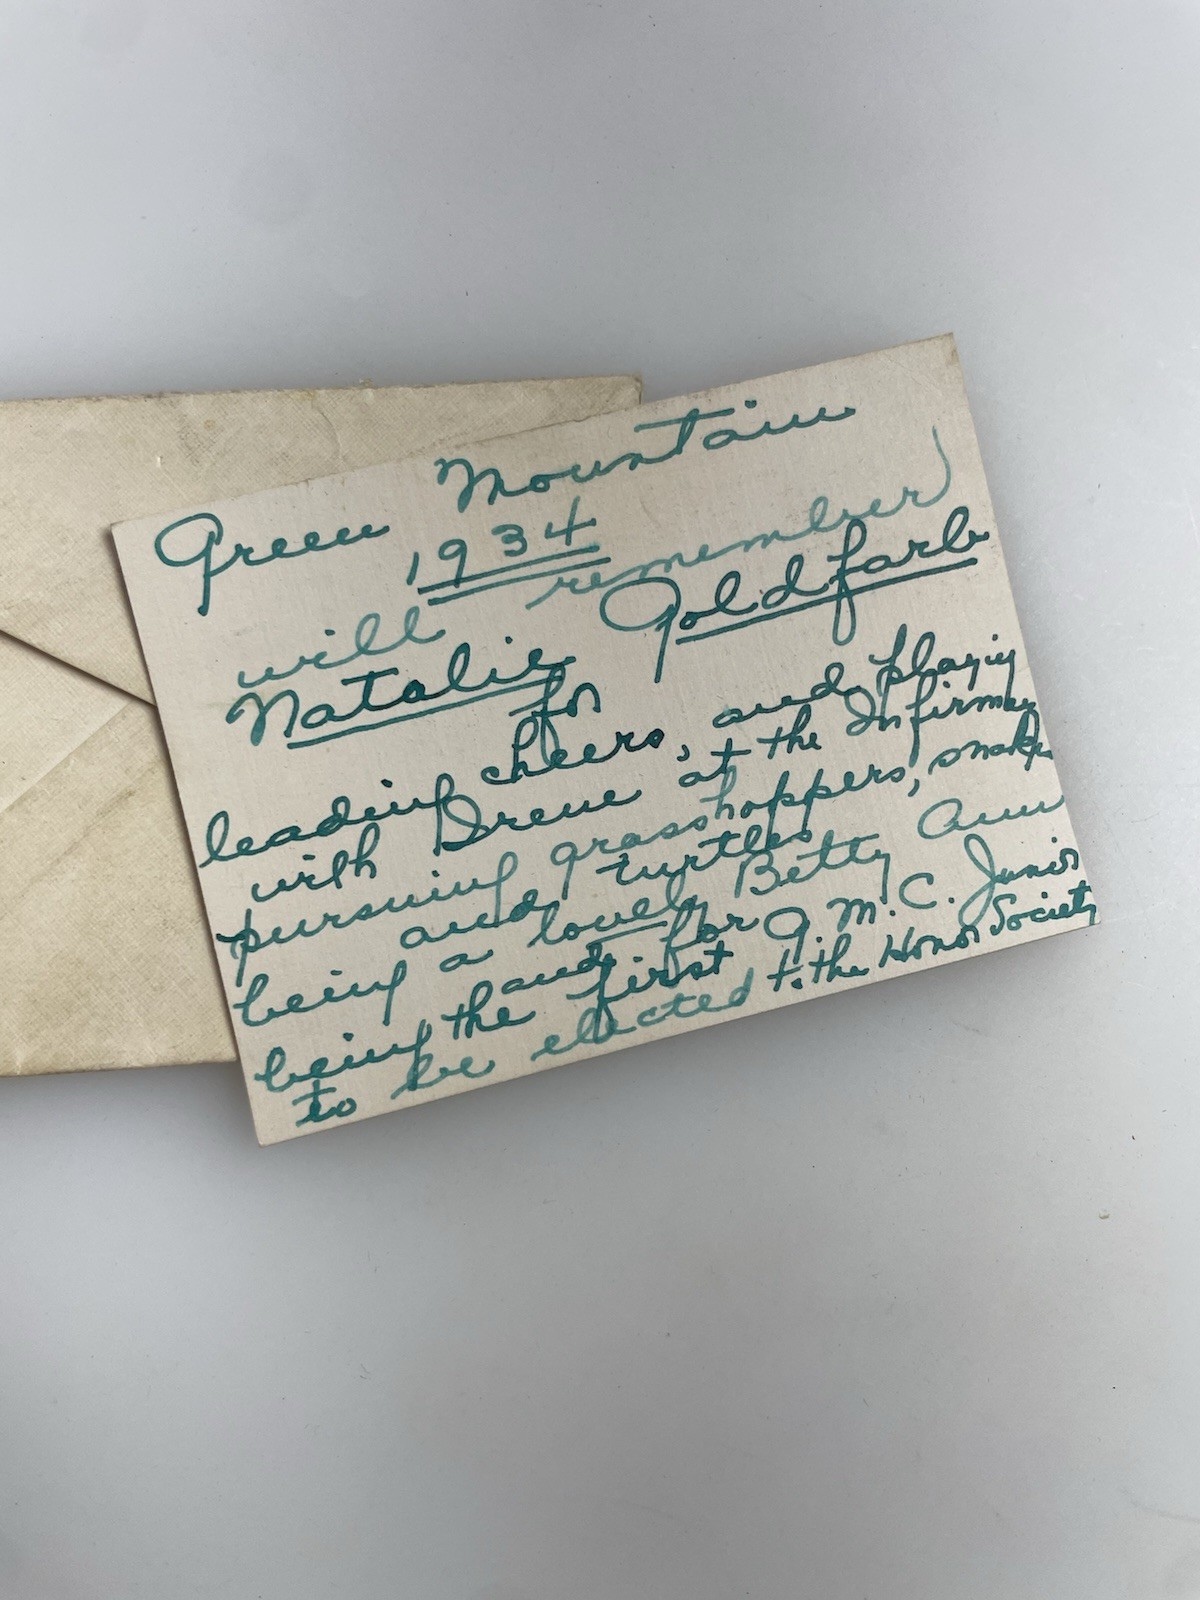 Green Mountain
1934
will remember
Natalie Goldfarb
for
leading cheers, and playing
with Irene at the Infirmary
pursuing grasshoppers, snakes
and turtles
being a lovely Betty Ann
and for G.M.C. Junior
being the first
to be elected to the Honor Society